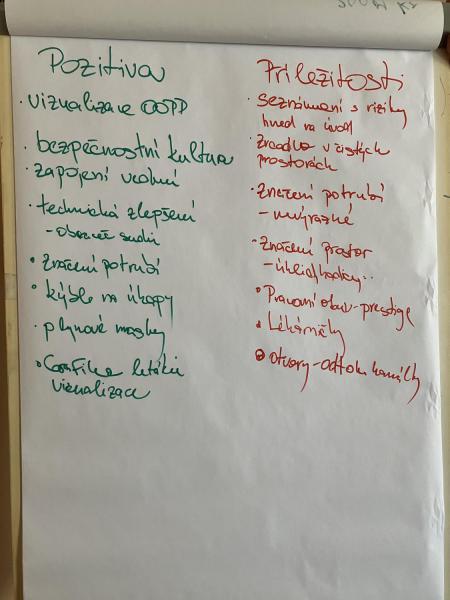 Pozitiva
· vizualizace OOPP
· bezpečnostní kultura
· zapojení vedení
· technická zlepšení
· Značení potrubí
· kýble na úkapy
· plynové masky
· Grafika letáků
vizualizace
Příležitosti
· Seznámení s riziky
hned na úvod
· Zrcadla v čistých
prostorách
· Značení potrubí
- nevýrazné
· Značení prostor
· Pracovní obuv - prestige
· Lékárničky
· otvory - odtok kanálky